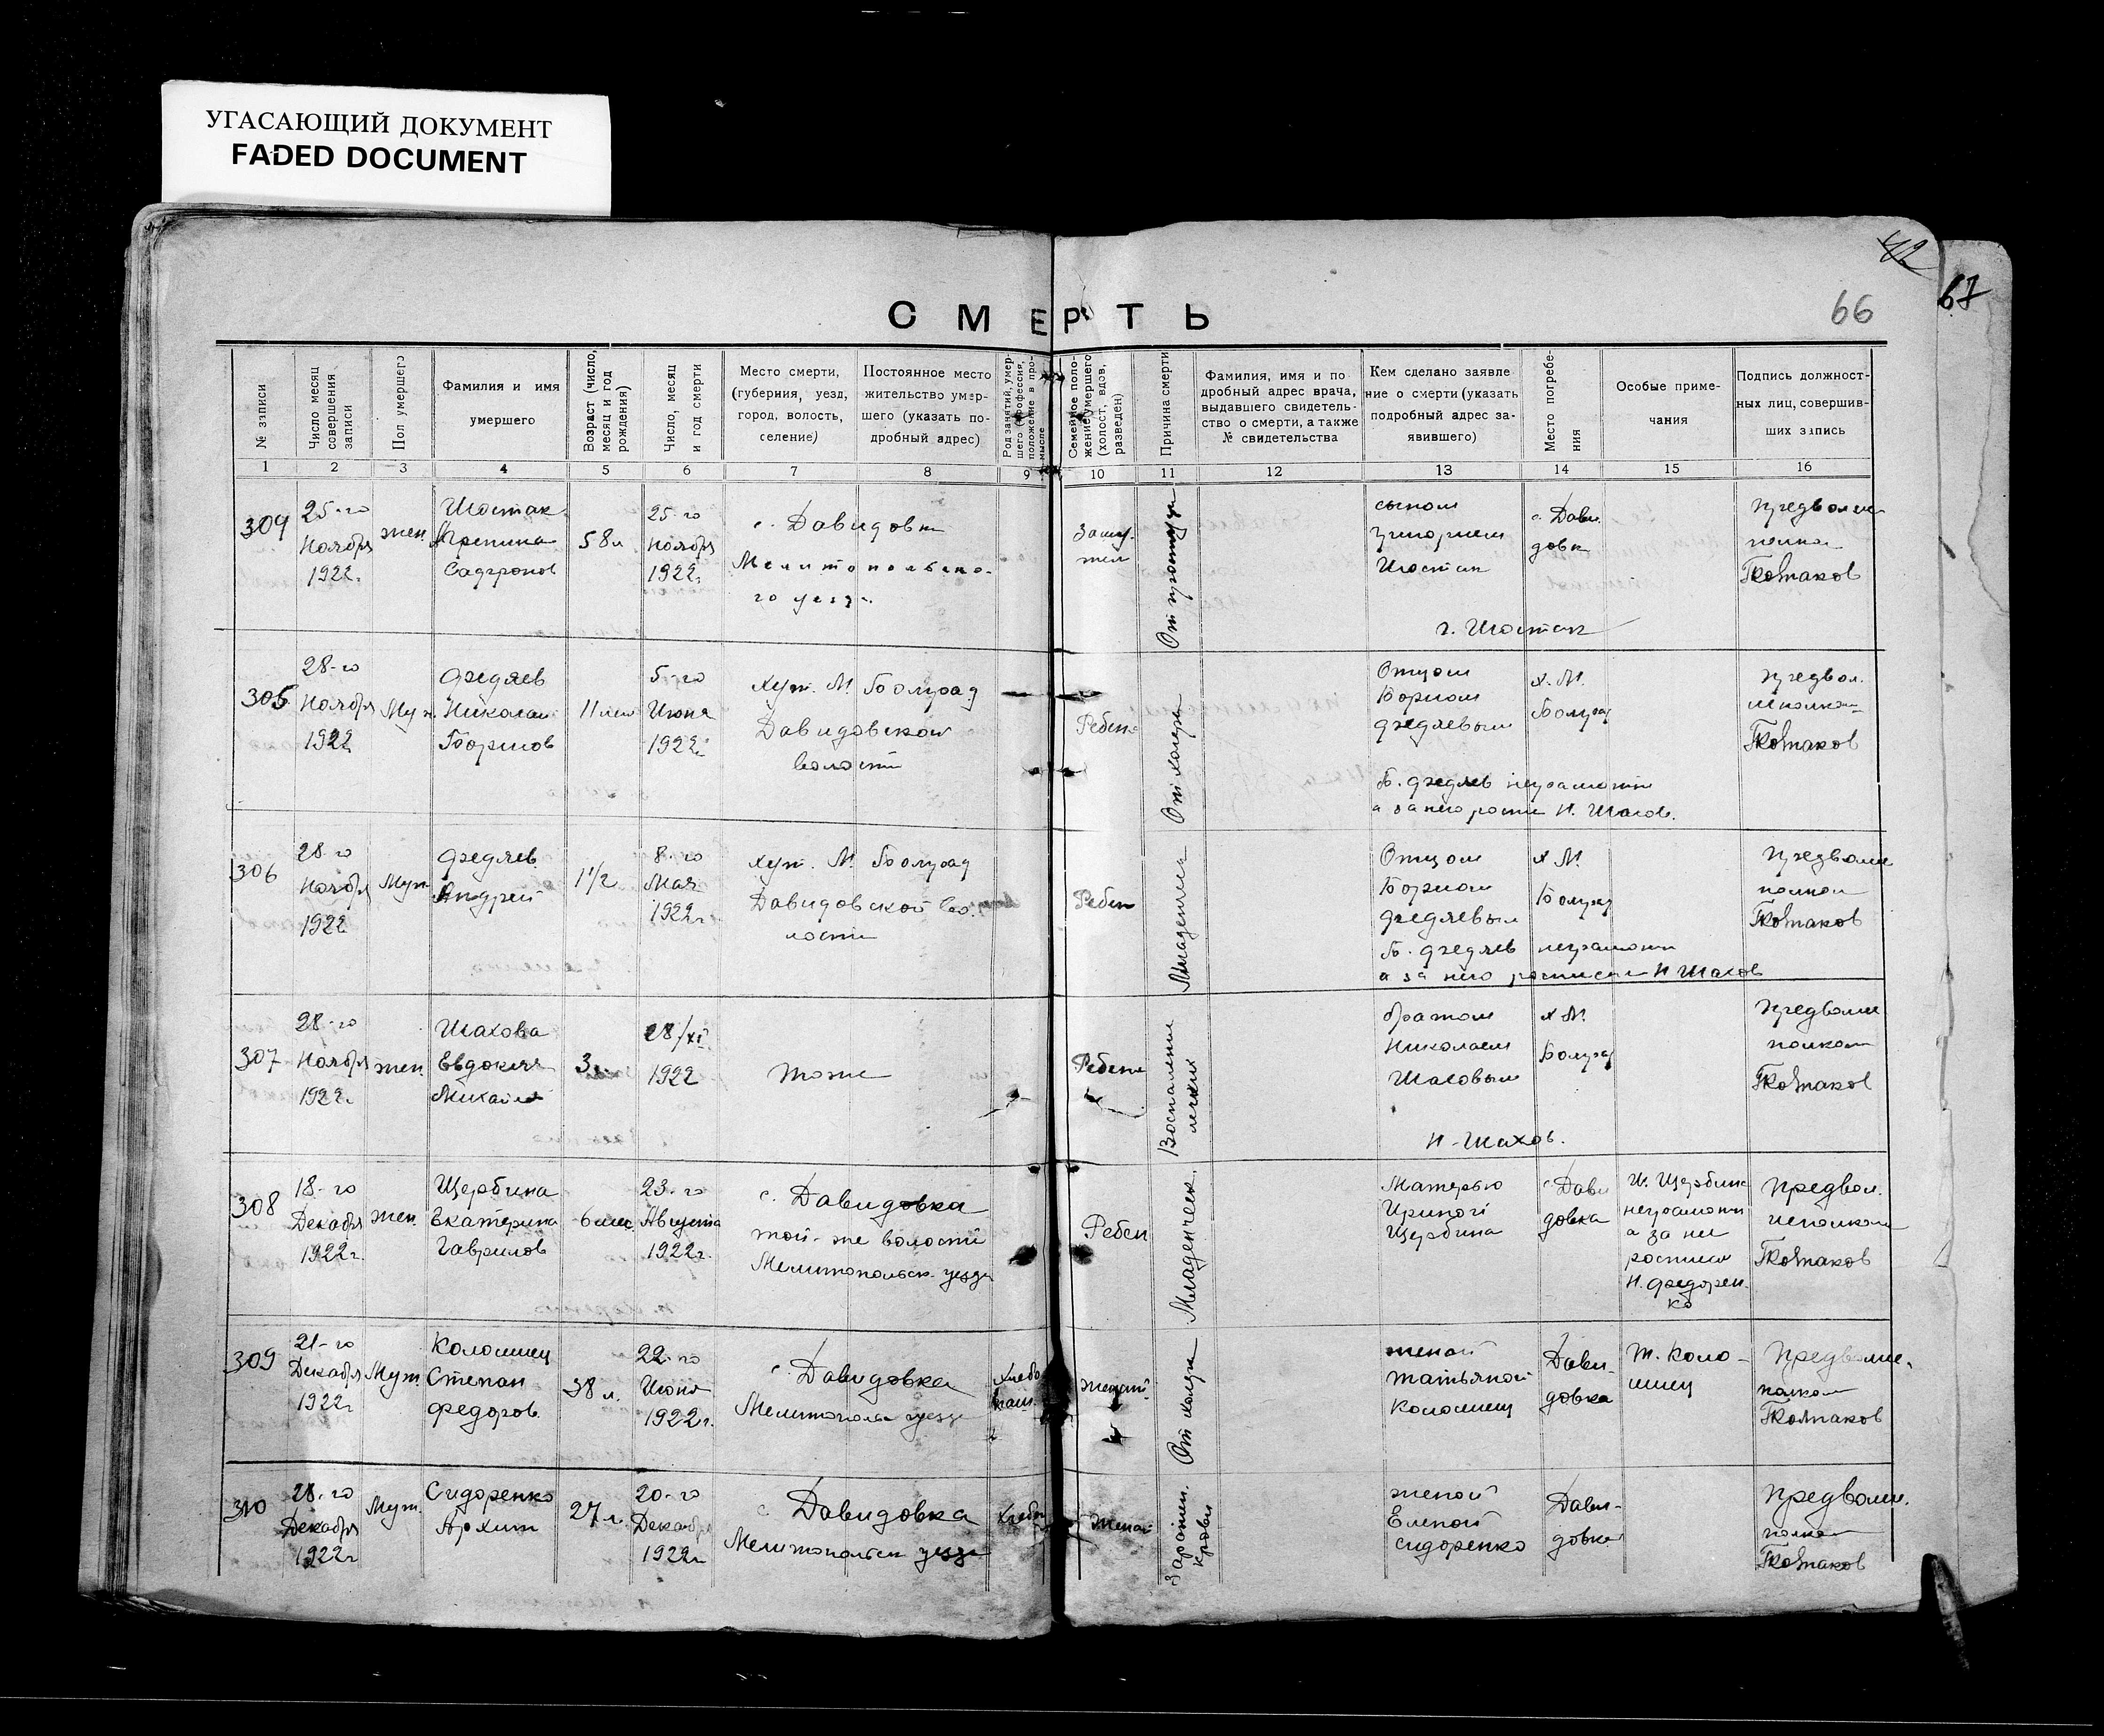 УГАСАЮЩИЙ ДОКУМЕНТ
FADED DOCUMENT
42
67
66
СМЕРТЬ
№ записи
Число месяц совершения записи
Пол умершего
Фамилия и имя
умершего
Возраст (число, месяц и год рождения)
Число, месяц и год смерти
Место смерти,
(губерния, уезд,
город, волость,
селение)
Постоянное место
жительство умер-
шего (указать по-
дробный адрес)
Род занятий, умер-
шего (профессия,
положение в про-
мысле
Семейное поло-
жение умершего
(холост, вдов,
разведен)
Причина смерти
Фамилия, имя и по
дробный адрес врача,
выдавшего свидетель-
ство о смерти, а также
№ свидетельства
Кем сделано заявле
ние о смерти (указать
подробный адрес за-
явившего)
Место погребе-
ния
Особые приме-
чания
Подпись должност-
ных лиц, совершив-
ших запись
1 2 3 4 5 6 7 8 9 10 11 12 13 14 15 16
304
25-го
Ноября
1922г.
жен.
Шостак
58л
25-го
Ноября
1922г.
с. Давидовк
Мелитопольско-
го уезда
От простуды
сыном
Григорием
Шостак
с. Дави
довк
Предволис
полком
Колпаков
Г. Шостак
305
28-го
Ноября
1922
Муж.
Федяев
Николай
Борисов
11 лет
5-го
Июня
1922г.
хут. М. Болград
Давидовской
волости
Ребен
От холеры
Отцом
Борисом
Федяевым
х. М.
Болград
Предвол.
исполком
Колпаков
Б. Федяев неграмотн
а за него росп Н. Шахов.
306
28-го
Ноября
1922
Муж
Федяев
Андрей
1 1/2
8-го
Мая
1922г.
хут. М. Болград
Давидовской во-
лости
Ребен
Младенчес
Отцом
Борисом
Федяевым
х М.
Болград
Предволис
полком
Колпаков
Б. Федяев неграмотн
а за него росписался Н Шахов
307
28-го
Ноября
1922г.
жен.
Шахова
Евдокия
Михайл
3г.
28/XI
1922
тоже
Ребен
Воспаление
легких
братом
Николаем
Шаховым
х М.
Болград
Предволис
полком
Колпаков
Н. Шахов.
308
18-го
Декабря
1922г.
жен.
Щербина
Екатерина
Гаврилов
6 мес
23-го
Августа
1922г.
с. Давидовка
той-же волости
Мелитопольск. уезда
Ребен
Младенческ.
Матерью
Ириной
Щербина
с. Дави
довка
И. Щербина
неграмотн
а за нее
росписал
Н. Федорен-
ко
Предвол.
исполком
Колпаков
309
21-го
Декабря
1922г
Муж.
Коломиец
Степан
Федоров.
38 л.
22-го
Июня
1922г.
с. Давидовка
Мелитопольс уезда
Хлебо
паш.
женат
От холеры
женой
Татьяной
Коломиец
Дави-
довка
Т. Коло-
миец
Предволис-
полком
Колпаков
310
28-го
Декабря
1922г
Муж.
Сидоренко
Архип
27 л.
20-го
Декабря
1922г
с Давидовка
Мелитопольск уезда
Хлебп
Женат
Заражен.
крови
женой
Еленой
Сидоренко
Дави-
довка
Предволис.
полком
Колпаков